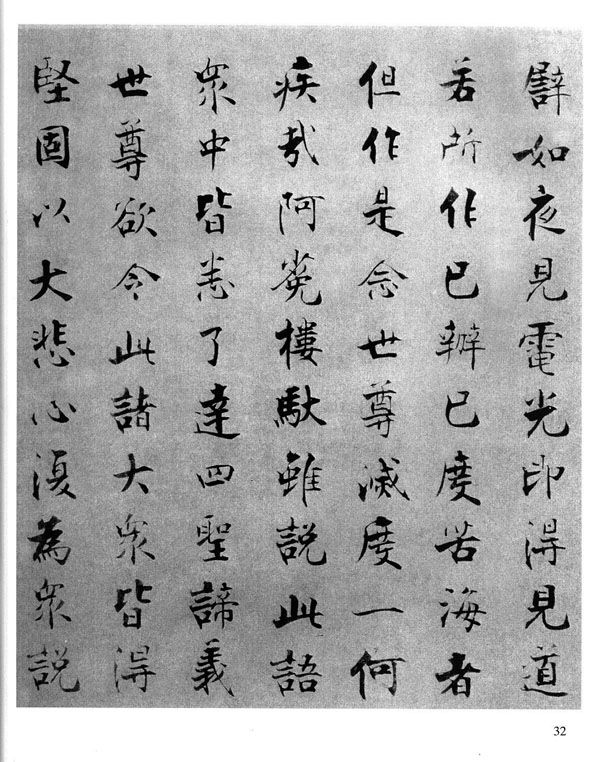 譬如夜見電光即得見道
若所作已辦已度苦海者
但作是念世尊滅度一何
疾哉阿㝹樓馱雖說此語
衆中皆悉了達四聖諦義
世尊欲令此諸大衆皆得
堅固以大悲心復為衆說
32